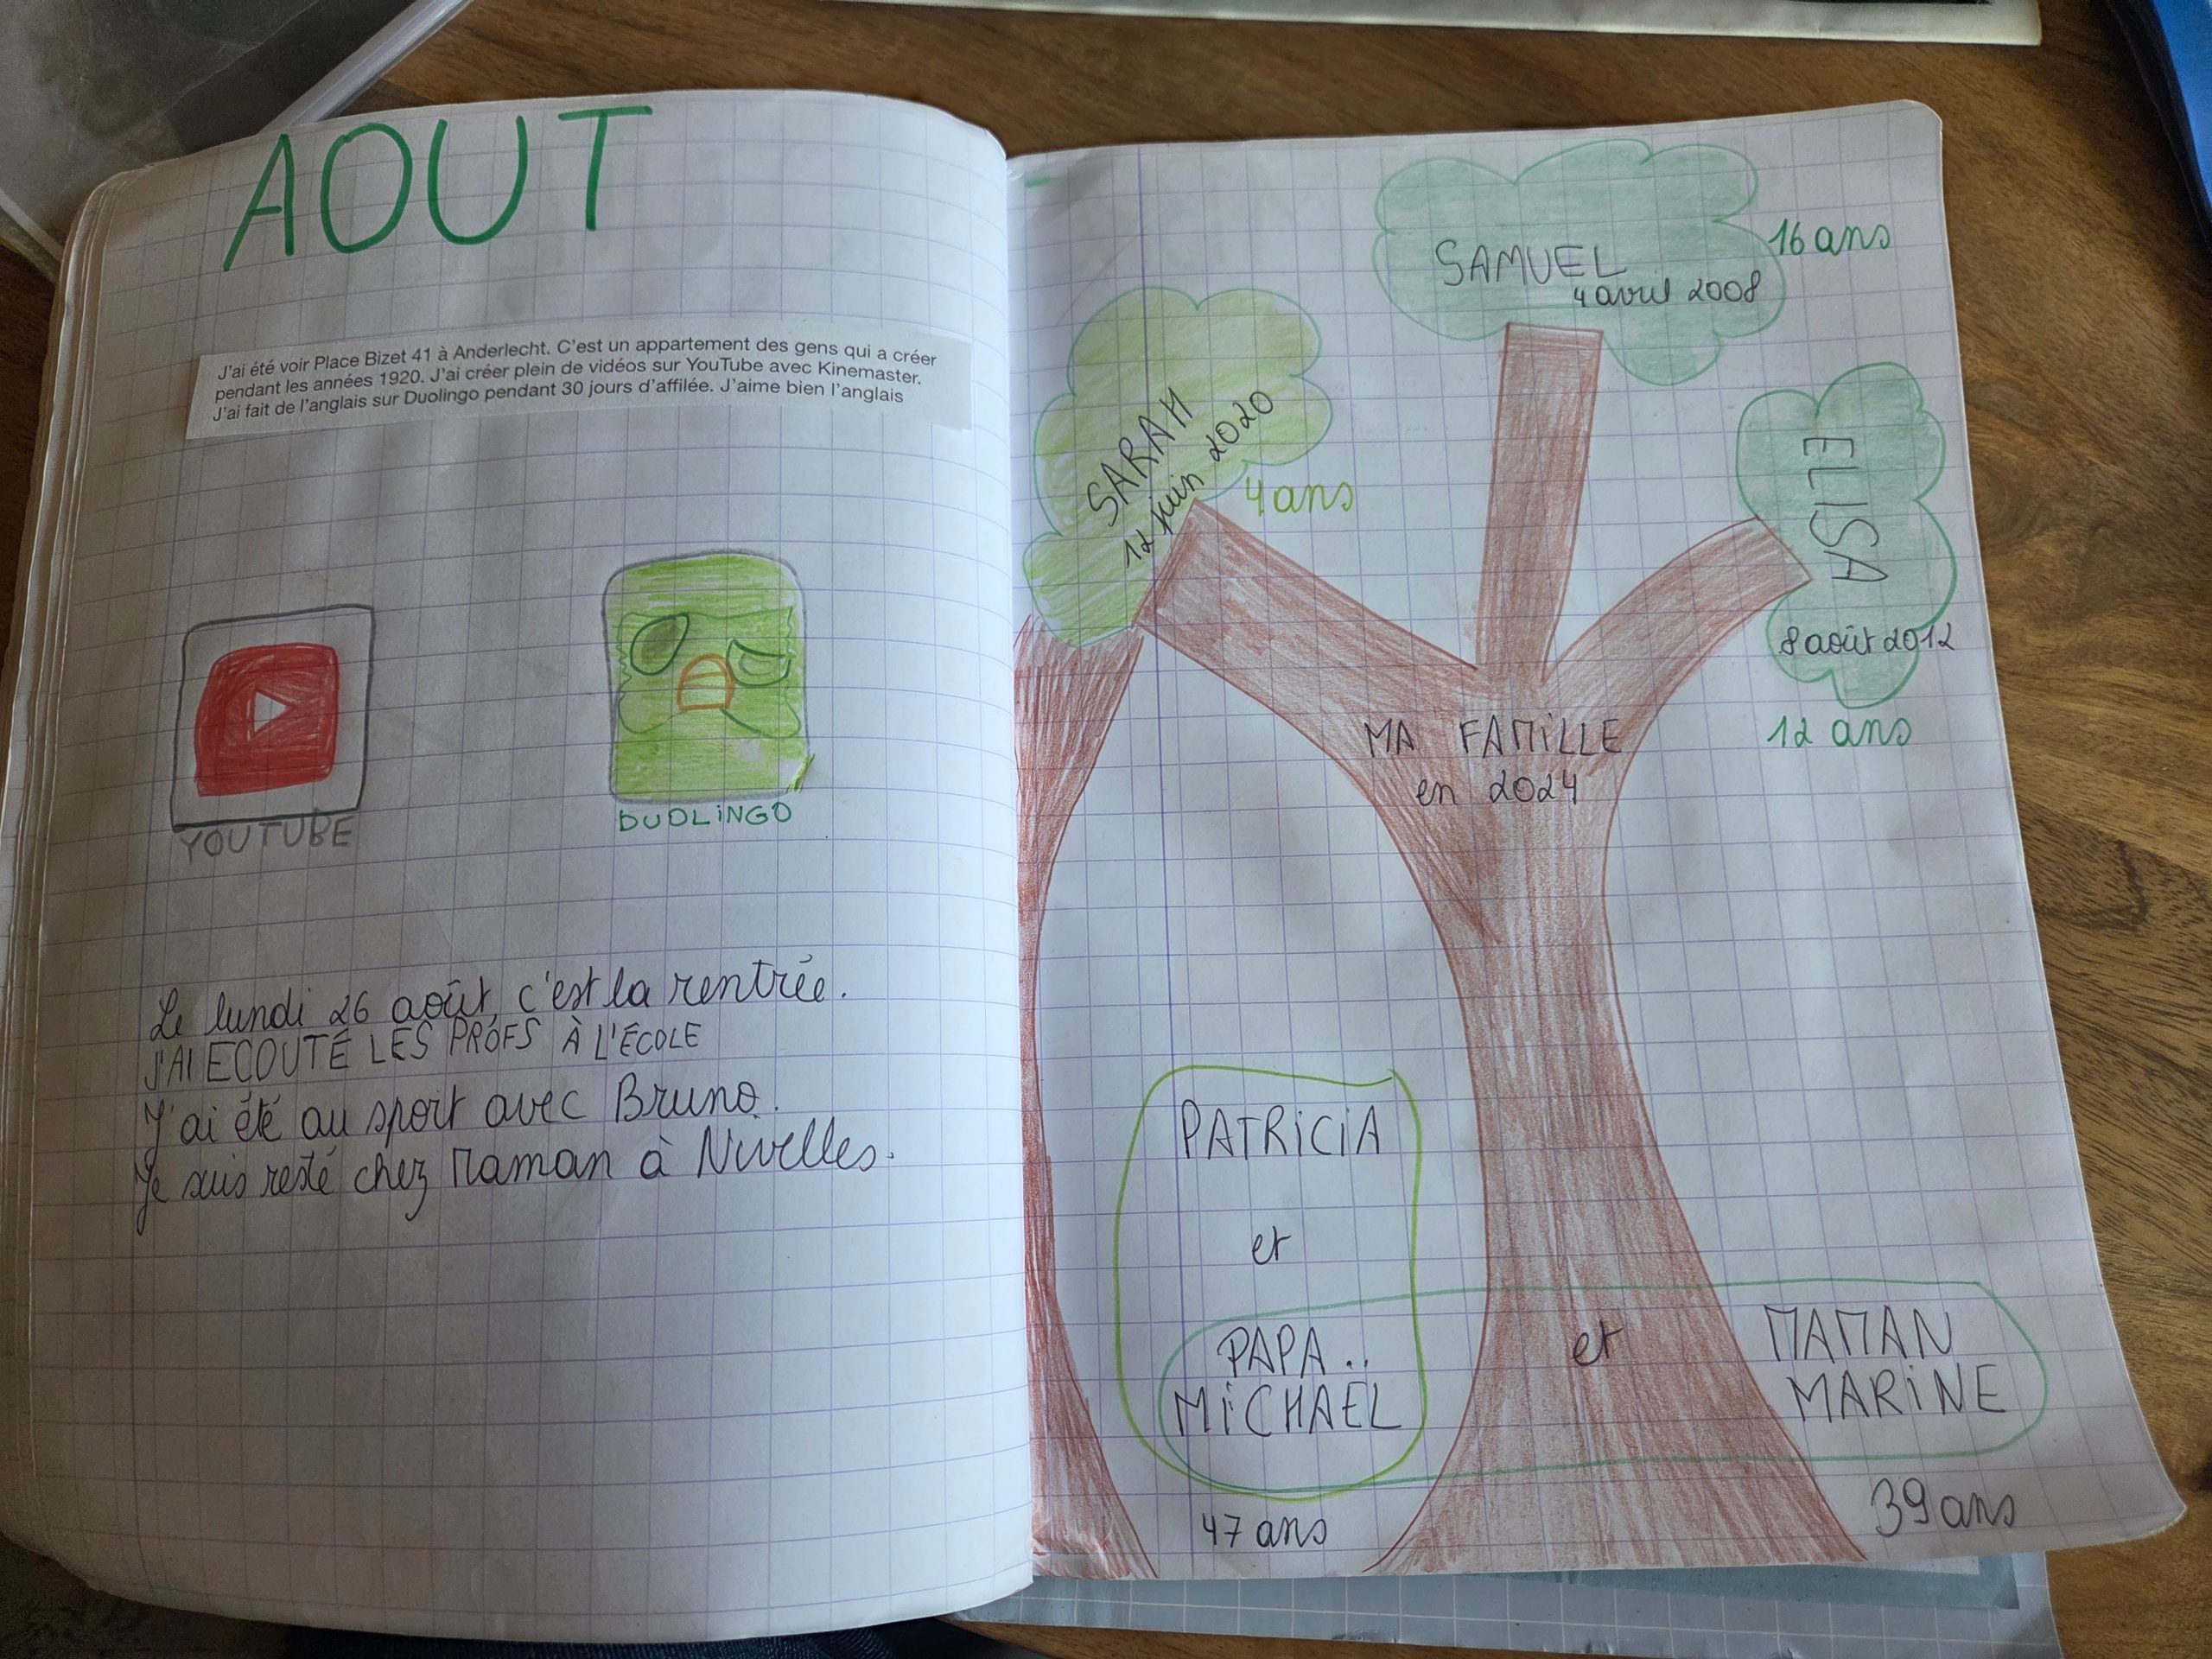 AOUT
J'ai été voir Place Bizet 41 à Anderlecht. C'est un appartement des gens qui a créer
pendant les années 1920. J'ai créer plein de vidéos sur YouTube avec Kinemaster.
J'ai fait de l'anglais sur Duolingo pendant 30 jours d'affilée. J'aime bien l'anglais
YOUTUBE
DUOLINGO
Le lundi 26 août, c'est la rentrée.
J'AI ECOUTÉ LES PROFS À L'ÉCOLE
J'ai été au sport avec Bruno.
Je suis resté chez Maman à Nivelles.
SAMUEL
4 avril 2008
16 ans
SARAH
12 juin 2020
4 ans
ELISA
8 août 2012
12 ans
MA FAMILLE
en 2024
PATRICIA
et
PAPA
MICHAËL
et
MAMAN
MARINE
47 ans
39 ans